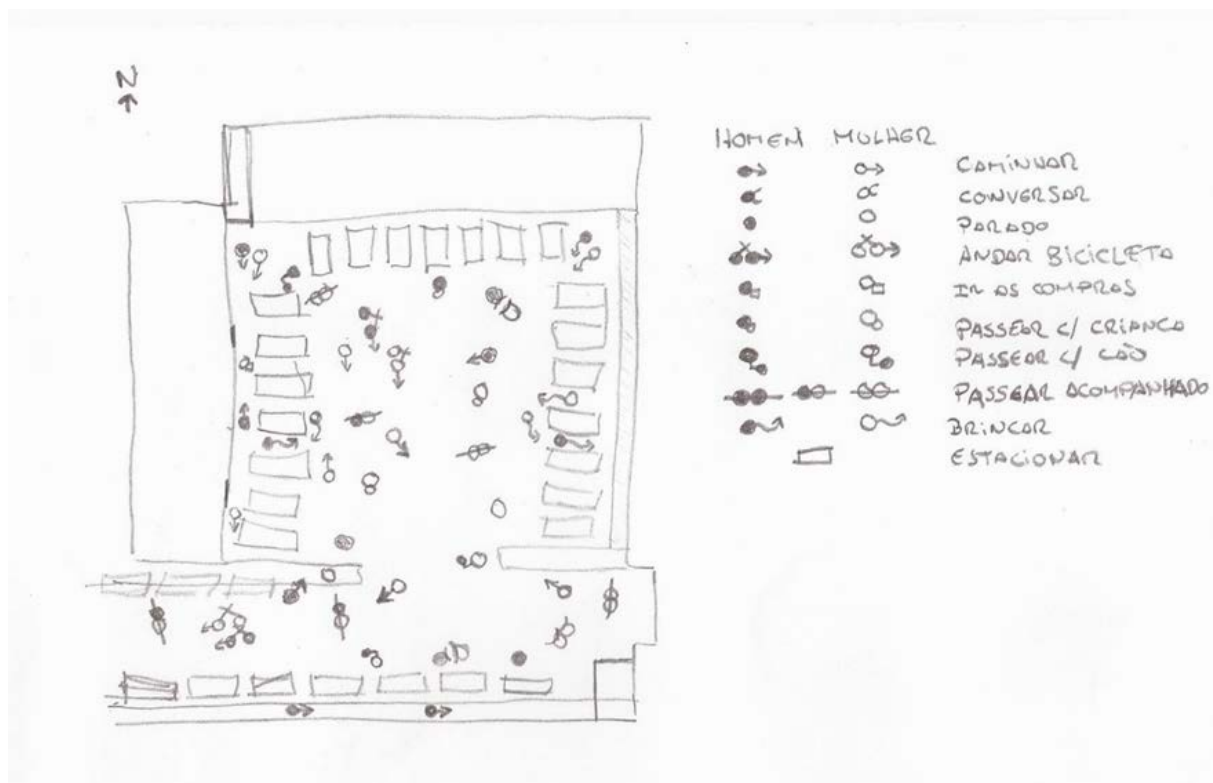 N
HOMEM MULHER
CAMINHAR
CONVERSAR
PARADO
ANDAR BICICLETA
IR AS COMPRAS
PASSEAR C/ CRIANCA
PASSEAR C/ CÃO
PASSEAR ACOMPANHADO
BRINCAR
ESTACIONAR